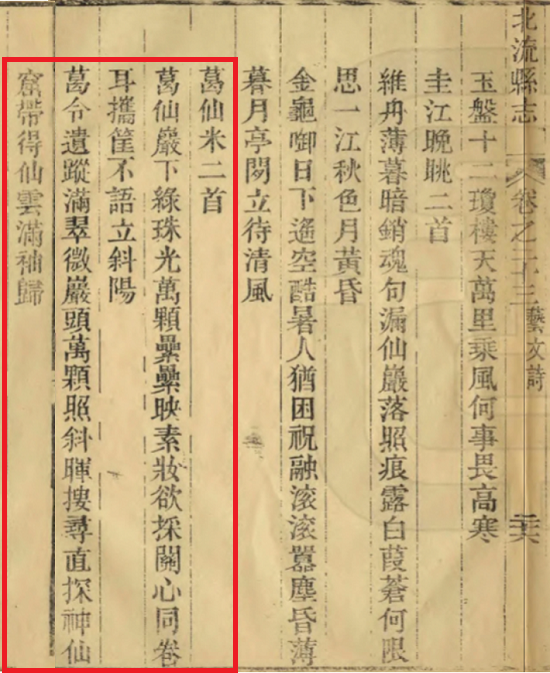 北流縣志 卷之二十三 藝文詩 三六
玉盤十二瓊樓天萬里乘風何事畏高寒
圭江晚眺二首
維舟薄暮暗銷魂句漏仙巖落照痕露白葭蒼何限
思一江秋色月黃昏
金龜啣日下遙空酷暑人猶困祝融滾滾囂塵昏薄
暮月亭閒立待清風
葛仙米二首
葛仙巖下綠珠光萬顆纍纍映素妝欲採關心同卷
耳攜筐不語立斜陽
葛令遺蹤滿翠微巖頭萬顆照斜暉搜尋直探神仙
窟帶得仙雲滿袖歸